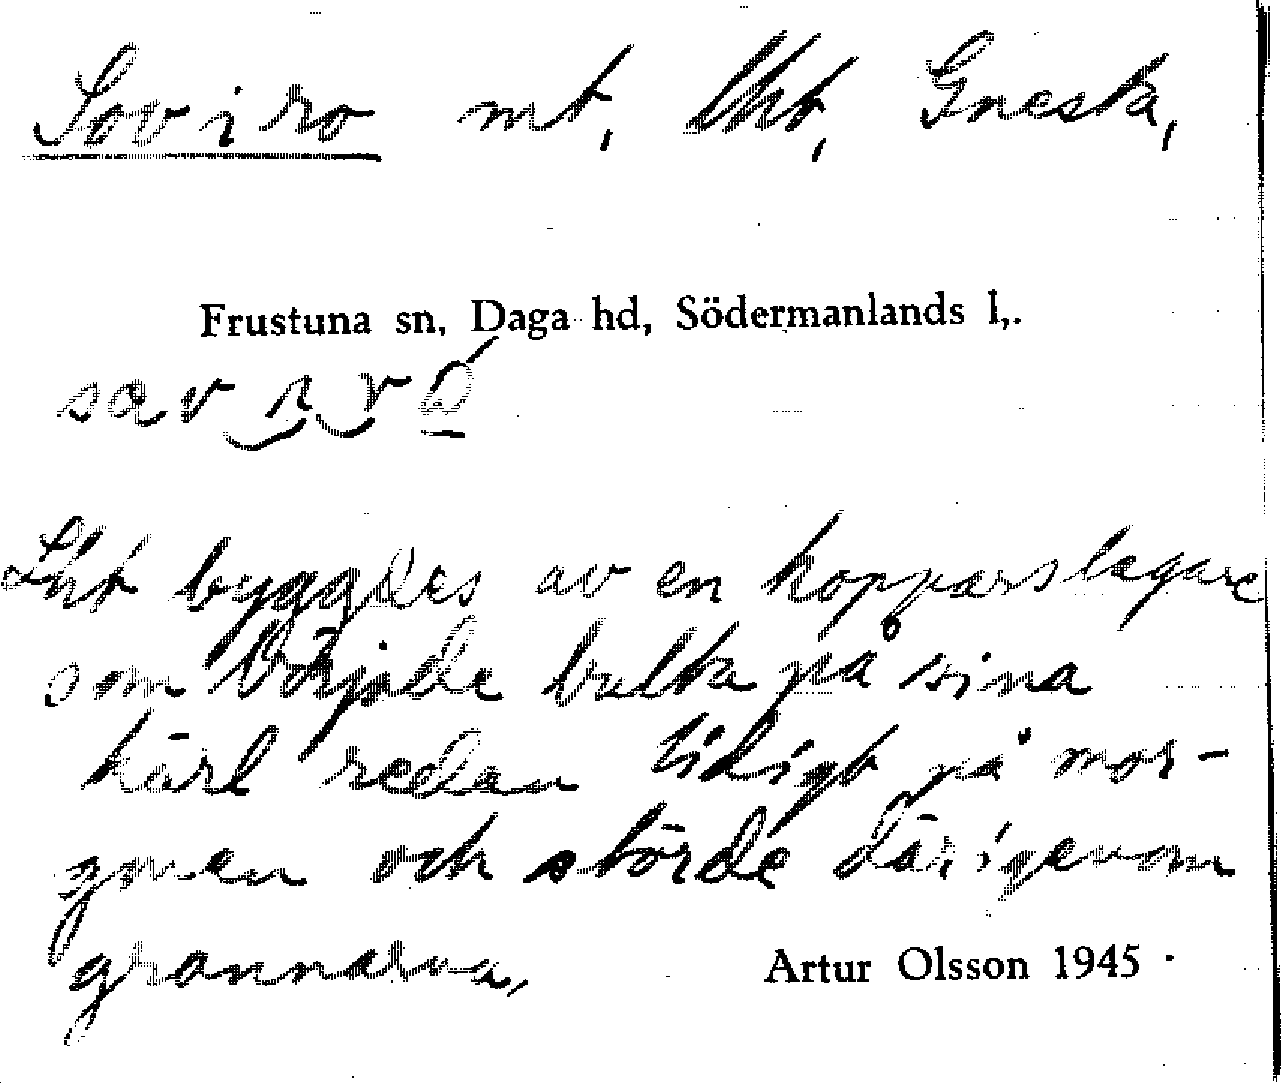 Sov i ro mt, lht, Gnesta,
Frustuna sn, Daga hd, Södermanlands l,.
Lht byggdes av en kopparslagare
som började bulta på sina
kärl redan tidigt på mor-
gonen och störde därigenom
grannarna,
Artur Olsson 1945